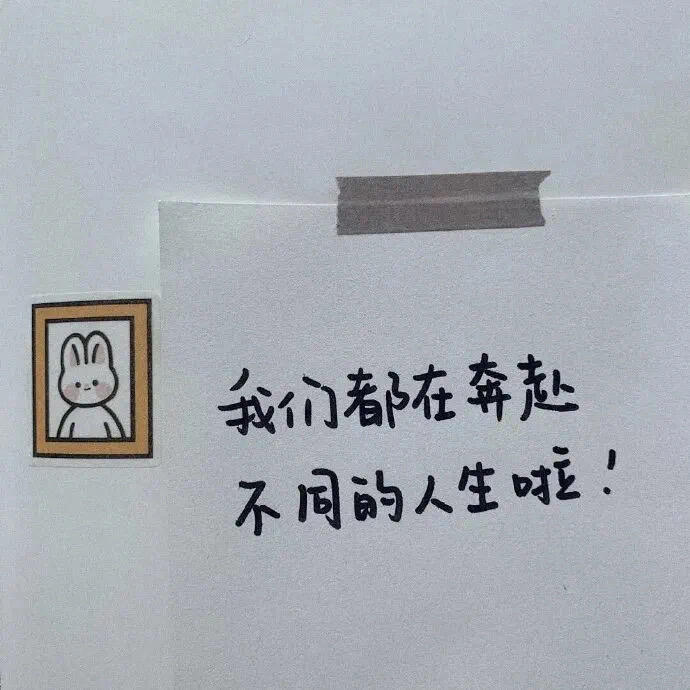 我们都在奔赴
不同的人生啦!